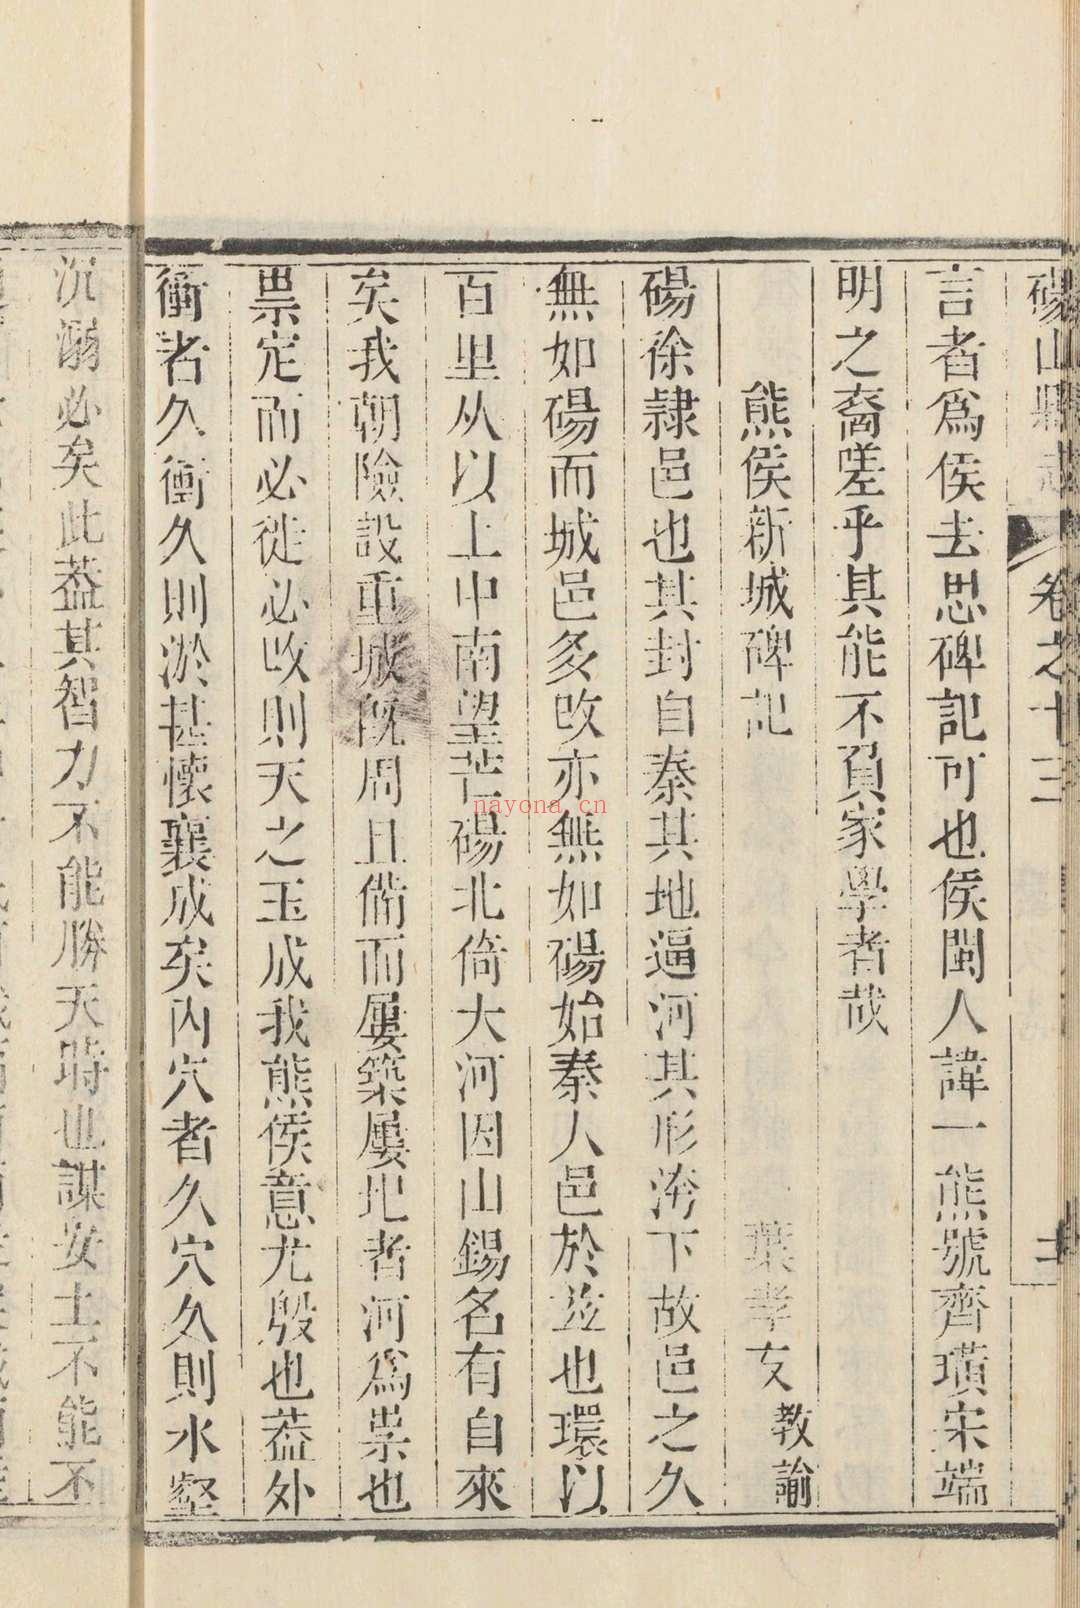 碭山縣志 卷之十三
言者爲侯去思碑記可也侯閩人諱一熊號齊璜宋端
明之裔嗟乎其能不負家學者哉
熊侯新城碑記 葉孝友 教諭
碭徐隷邑也其封自秦其地逼河其形洿下故邑之久
無如碭而城邑多改亦無如碭始秦人邑於兹也環以
百里从以上中南望芒碭北倚大河因山錫名有自來
矣我朝險設重城既周且備而屢築屢圮者河爲祟也
祟定而必徙必改則天之玉成我熊侯意尤殷也葢外
衝者久衝久則淤甚懷襄成矣内穴者久穴久則水壑
沉溺必矣此葢其智力不能勝天時也謀安土不能不
nayona.cn